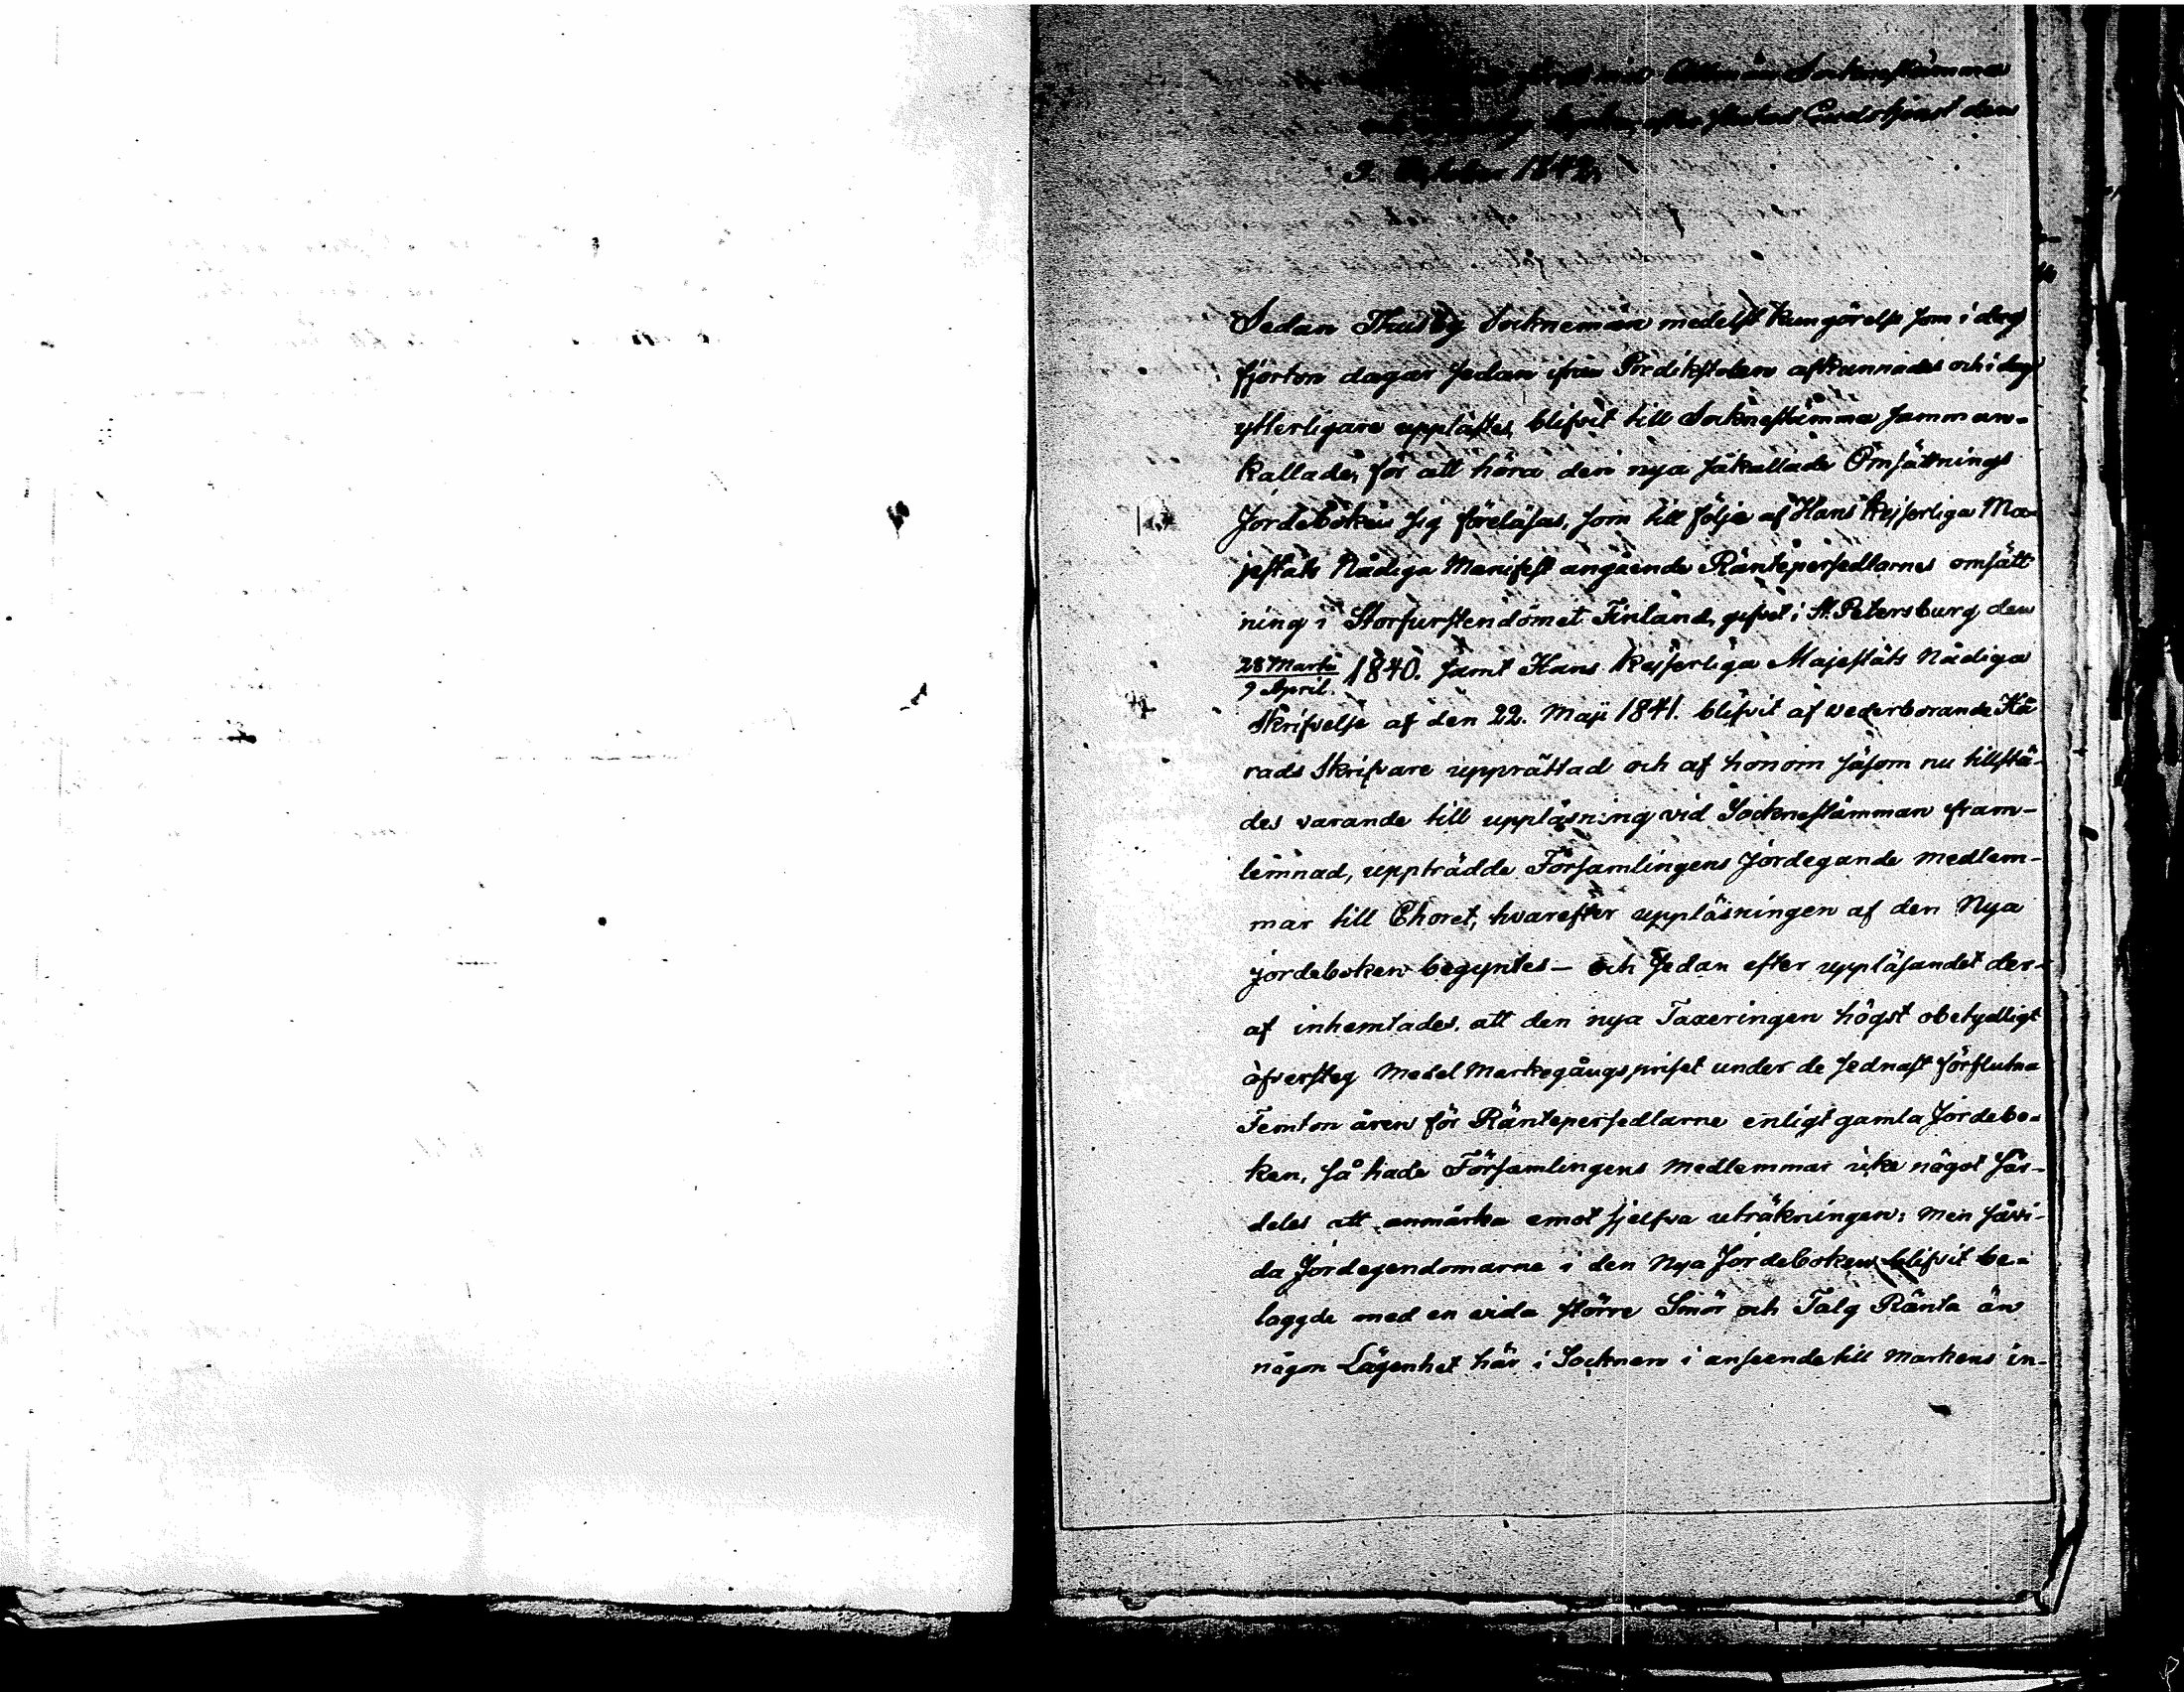 Allmän Sockneståmma
efter slutad Gudstjenst den
2. October 1842,
Sedan Thusby Socknemän medelst kungörelse som i dag
fjorton dagar sedan ifrån Predikstolen afkunnades och i dag
ytterligare upplästes, blifvit till Socknestämma samman-
kallade, för att höra den nya såkallade Omsättnings
Jordeboken sig föreläsas, som till följe af Hans Kejserliga Ma-
jestäts Nådiga Manifest angående Ränteperseldarnes omsätt
ning i Storfurstendömet Finland, gifvet i St. Petersburg den
28 Martii / 9 April. 1840. samt Hans Kejserliga Majestäts Nådiga
Skrifvelse af den 22. Maji 1841. blifvit af wederborande Hä
rads Skrifvare upprättad och af honom såsom nu tillstä-
des varande till uppläsning vid Socknestämman fram-
lemnad, uppträdde Församlingens Jordegande medlem-
mar till Choret, hvarefter uppläsningen af den Nya
jordeboken begyntes — och sedan efter uppläsandet der-
af inhemtades, att den nya Taxeringen högst obetydligt
öfversteg Medel Markegångspriset under de sednast förflutna
Femton åren för Räntepersedlarne enligt gamla Jordebo-
ken, så hade Församlingens medlemmar icke något sär-
deles att anmärka emot sjelfva uträkningen; men såvi-
da Jordegendomarne i den Nya Jordeboken blifvit be-
laggde med en vida större Smör och Talg Ränta än
någon Lägenhet här i Socknen i anseende till markens in-